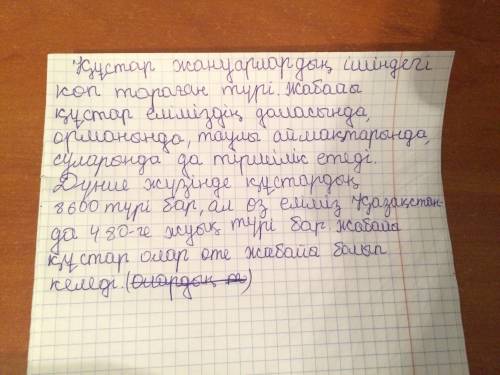 Құстар жануарлардың ішіндегі
көп тараған түрі. Жабайы
құстар еліміздің даласында,
орманында, таулы аймақтарында,
суларында да тіршілік етеді.
Дүние жүзінде құстардың
8600 түрі бар, ал өз еліміз Қазақстан-
да 480-ге жуық түрі бар жабайы
құстар олар өте жабайы болып
келеді. (олардың )